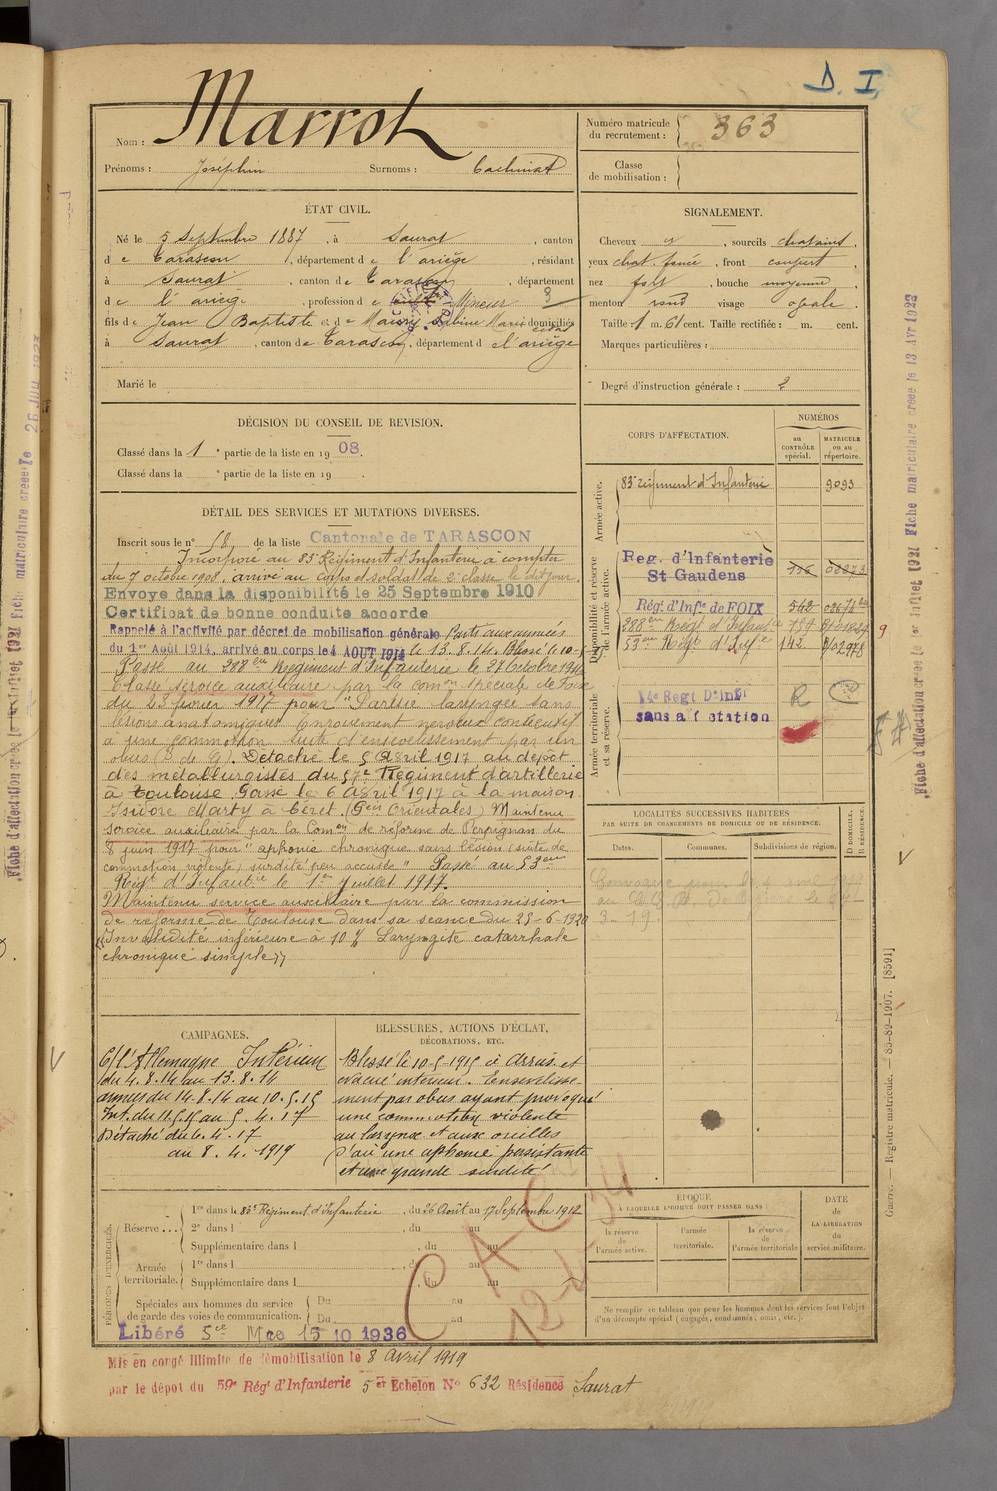 D. I.
Nom : Marrot
Prénoms : Joséphin Surnoms :
Numéro matricule du recrutement : 363
Classe de mobilisation :
ÉTAT CIVIL.
Né le 5 Septembre 1887, à Saurat, canton
de Tarascon, département de l'ariège, résidant
à Saurat, canton de Tarascon, département
de l'ariège, profession de Mineur 3
fils de Jean Baptiste et de Maury Sabine Marie domiciliés
à Saurat, canton de Tarascon, département d l'ariège
Marié le
SIGNALEMENT.
Cheveux , sourcils chatains,
yeux chat. foncé, front couvert,
nez fort, bouche moyenne,
menton rond visage ovale.
Taille : 1 m. 61 cent. Taille rectifiée : m. cent.
Marques particulières :
Degré d'instruction générale : 2
DÉCISION DU CONSEIL DE REVISION.
Classé dans la 1e partie de la liste en 1908.
Classé dans la e partie de la liste en 19 .
DÉTAIL DES SERVICES ET MUTATIONS DIVERSES.
Inscrit sous le n° 18 de la liste Cantonale de TARASCON
Incorporé au 83e Régiment d'Infanterie à compter
du 7 octobre 1908, arrivé au corps et soldat de 2e classe le dit jour.
Envoyé dans la disponibilité le 25 Septembre 1910
Certificat de bonne conduite accordé
Rappelé à l'activité par décret de mobilisation générale Parti aux armées
du 1er Août 1914, arrivé au corps le 4 AOUT 1914 le 13.8.14. Blessé le 10-5-15.
Passé au 388eme Régiment d'Infanterie le 27 Octobre 1916
Classé service auxiliaire par la comon spéciale de Foix
du 23 février 1917 pour "Parésie laryngée sans
lésions anatomiques Enrouement nerveux consécutif
à une commotion suite d'ensevelissement par un
obus (B de G). Détaché le 5 Avril 1917 au dépôt
des métallurgistes du 57e Régiment d'artillerie
à Toulouse. Passé le 6 Avril 1917 à la maison
Isidore Marty à Céret (Pées Orientales) Maintenu
service auxiliaire par la Comon de réforme de Perpignan du
8 juin 1917 pour "aphonie chronique sans lésion (suite de
commotion violente) surdité peu accusée" Passé au 53eme
Régt d'Infantie le 1er Juillet 1917.
Maintenu service auxiliaire par la commission
de réforme de Toulouse dans sa séance du 23-6-1920
"Invalidité inférieure à 10 % Laryngite catarrhale
chronique simple"
CORPS D'AFFECTATION.
NUMÉROS
au CONTRÔLE spécial.
MATRICULE ou au répertoire.
Armée active.
83e régiment d'Infanterie 9093
Disponibilité et réserve de l'armée active.
Reg. d'Infanterie St Gaudens
Rég. d'Infie de FOIX 562
388eme Regt d'Infantie
53eme Régt d'Infie 142 B/02978
Armée territoriale et sa réserve.
14e Regt D'inf
sans affectation R
LOCALITÉS SUCCESSIVES HABITÉES
PAR SUITE DE CHANGEMENTS DE DOMICILE OU DE RÉSIDENCE.
Dates. Communes. Subdivisions de région. D DOMICILE. R RÉSIDENCE.
CAMPAGNES.
C/ l'Allemagne Intérieur
du 4.8.14 au 13.8.14
armées du 14.8.14 au 10.5.15
Int. du 11.5.15 au 5.4.17
Détaché du 6.4.17
au 8.4.1919
BLESSURES, ACTIONS D'ÉCLAT,
DÉCORATIONS, ETC.
Blessé le 10-5-1915 à Arras et
évacué intérieur. Ensevelisse-
ment par obus ayant provoqué
une commotion violente
au larynx et aux oreilles
d'où une aphonie persistante
et une grande surdité
PÉRIODES D'EXERCICES.
Réserve ... 1re dans le 83e Régiment d'Infanterie, du 26 Août au 17 Septembre 1912
2e dans l , du au
Supplémentaire dans l , du au
Armée territoriale. 1re dans l , du au
Supplémentaire dans l , du au
Spéciales aux hommes du service
de garde des voies de communication. Du au
Du au
ÉPOQUE
À LAQUELLE L'HOMME DOIT PASSER DANS :
la réserve de l'armée active. l'armée territoriale. la réserve de l'armée territoriale
DATE de LA LIBÉRATION du service militaire.
Ne remplir ce tableau que pour les hommes dont les services font l'objet
d'un décompte spécial (engagés, condamnés, omis, etc.).
Libéré Sce Mre 15 10 1936
Mis en congé illimité de démobilisation le 8 Avril 1919
par le dépôt du 59e Rég. d'Infanterie 5er Echelon No 632 Résidence Saurat
Fiche matriculaire créée le 13 AVR 1923
Fiche d'affectation créée le 1er Juillet 1921
Guerre. — Registre matricule. — 85-89-1907. [8591]
Fiche d'affectation créée le 1er Juillet 1921 Fiche matriculaire créée le